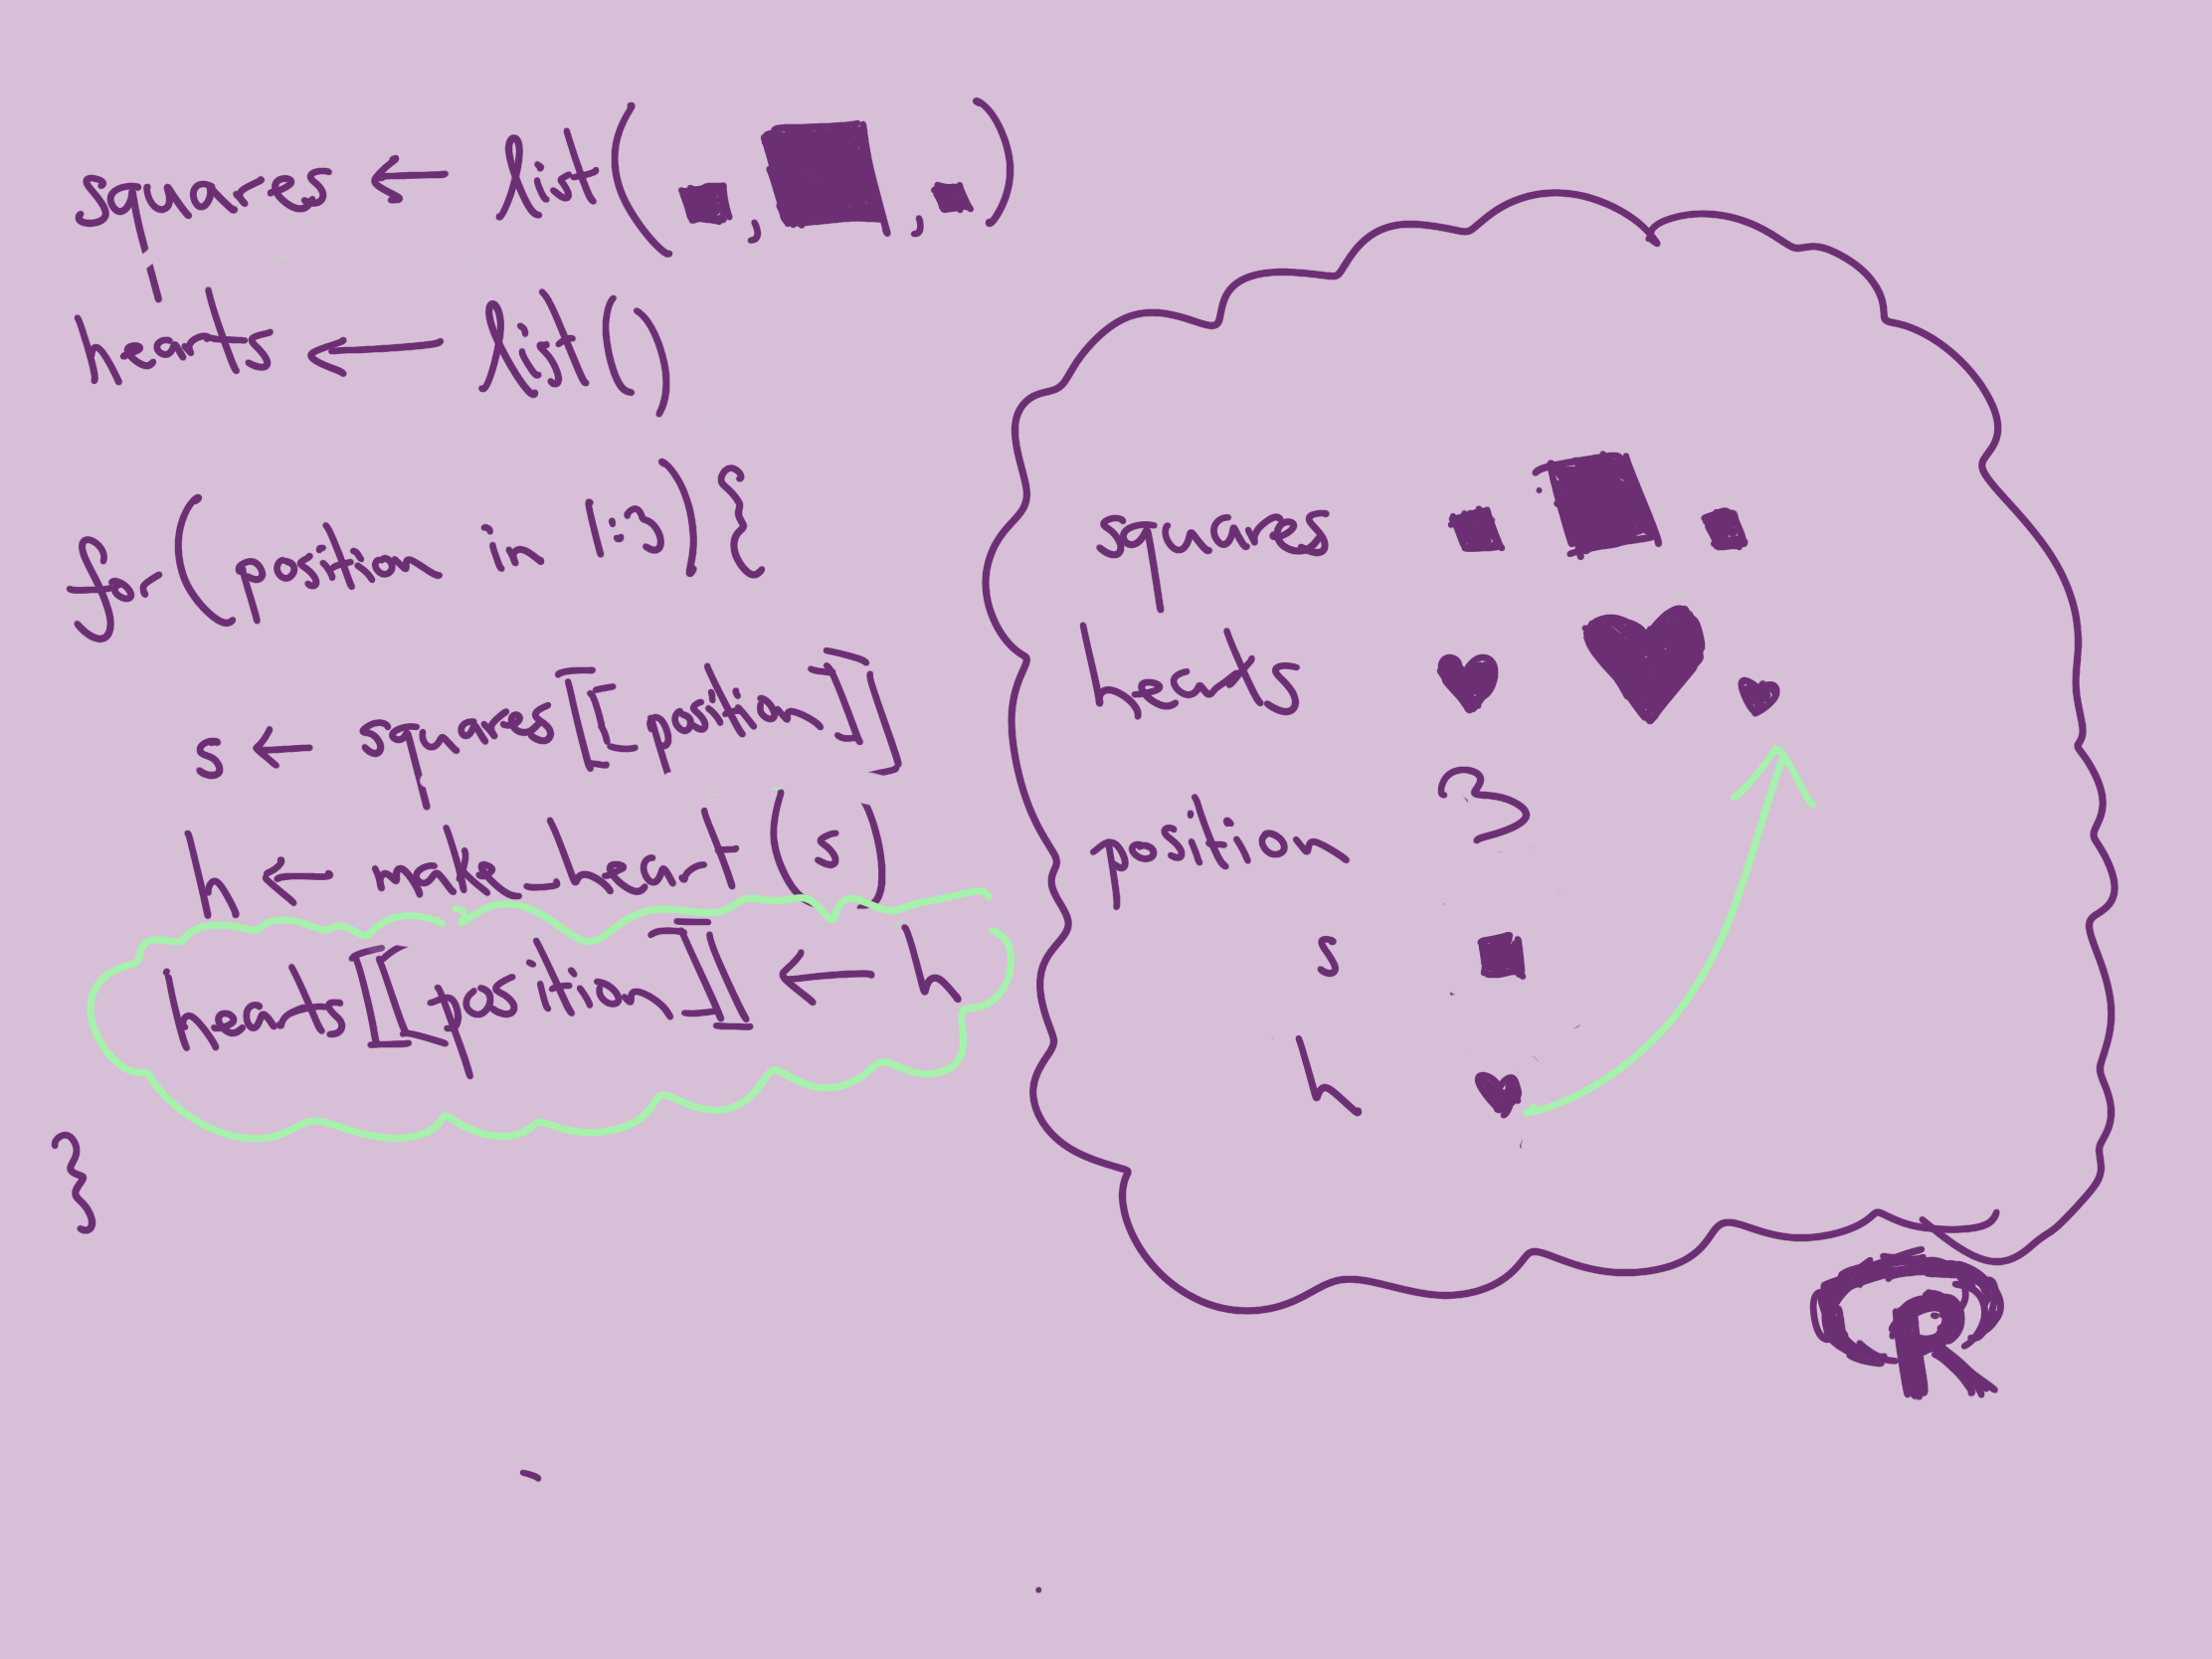 squares ← list( , , )
hearts ← list()
for(position in 1:3){
s ← squares[[position]]
h ← make_heart(s)
hearts[[position]] ← h
}
squares
hearts
position 3
s
h
R